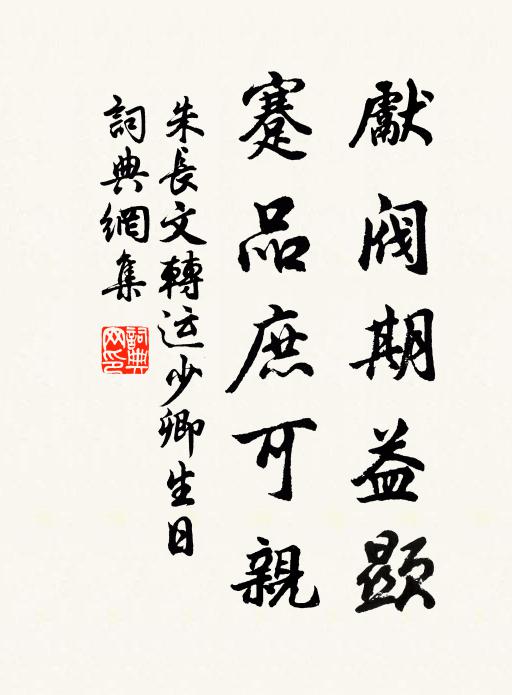 獻閥期益顯
蹇品庶可親
朱長文轉运少卿生日
詞典網集
詞典網印